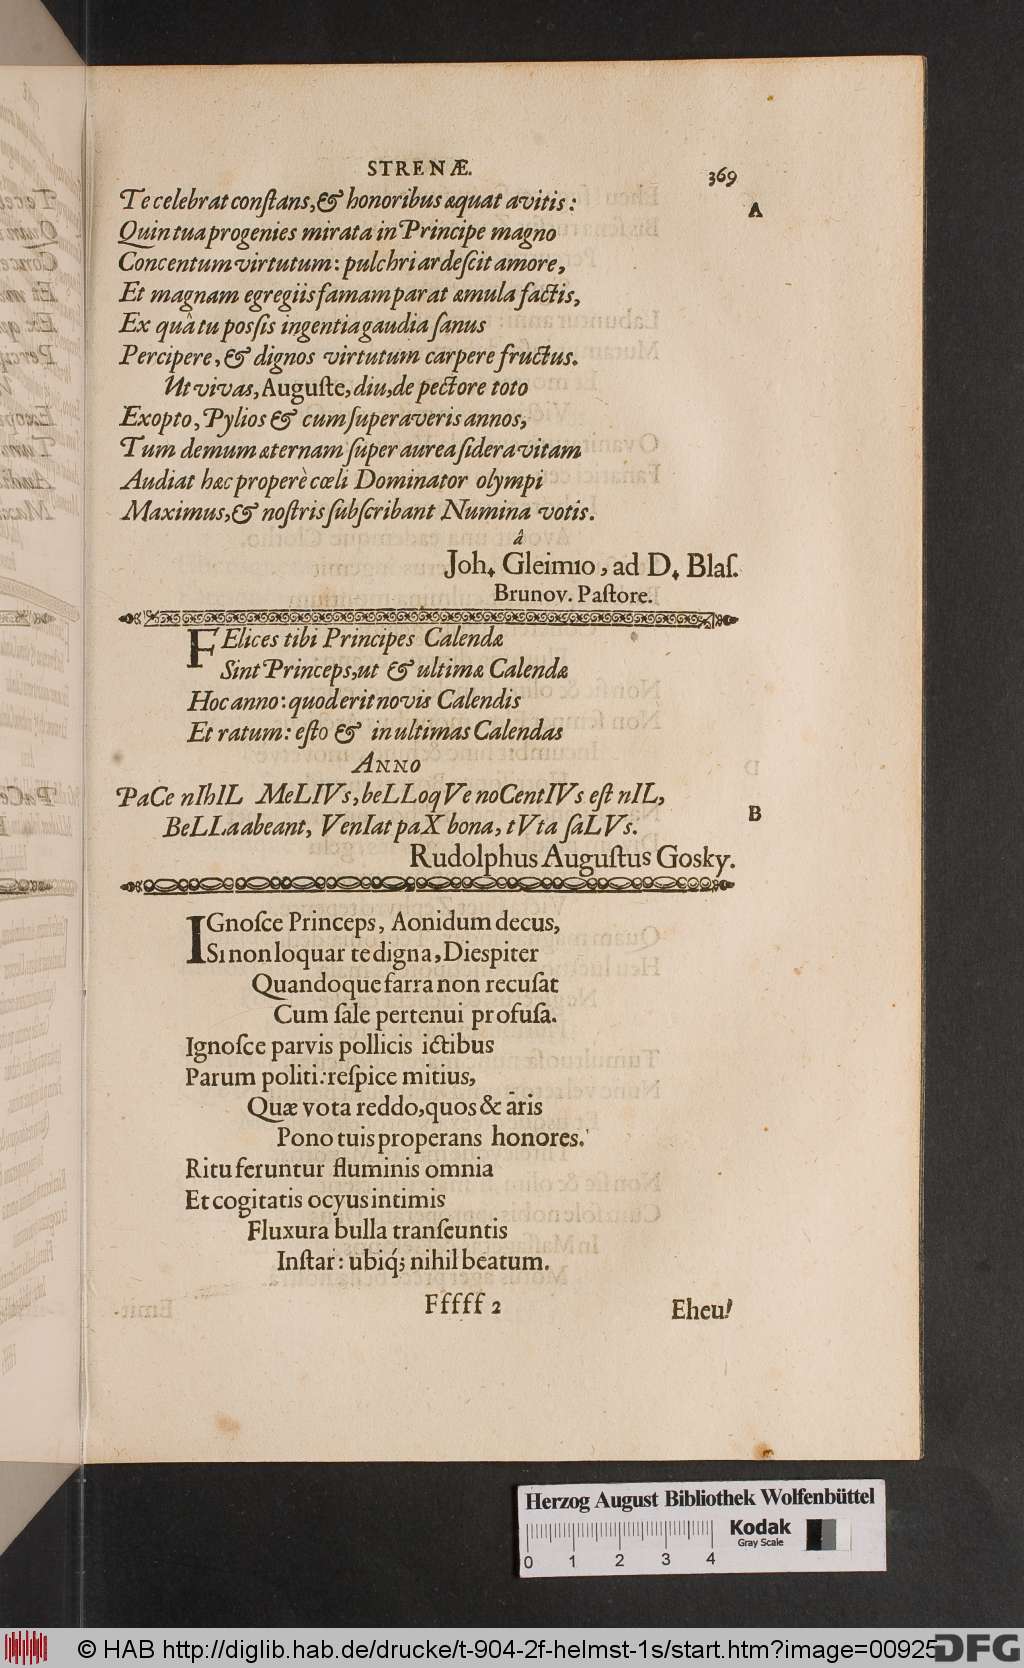 STRENÆ. 369
Te celebrat conſtans, & honoribus æquat avitis: A
Quin tua progenies mirata in Principe magno
Concentum virtutum: pulchri ardeſcit amore,
Et magnam egregiis famam parat æmula factis,
Ex quâ tu poſſis ingentia gaudia ſanus
Percipere, & dignos virtutum carpere fructus.
Ut vivas, Auguſte, diu, de pectore toto
Exopto, Pylios & cum ſuperaveris annos,
Tum demum æternam ſuper aurea ſidera vitam
Audiat hæc properè cœli Dominator olympi
Maximus, & noſtris ſubſcribant Numina votis.
â
Joh. Gleimio, ad D. Blaſ.
Brunov. Paſtore.
FElices tibi Principes Calendæ
Sint Princeps, ut & ultimæ Calendæ
Hoc anno: quod erit novis Calendis
Et ratum: eſto & in ultimas Calendas
ANNO
PaCe nIhIL MeLIVs, beLLoqVe noCentIVs eſt nIL,
BeLLa abeant, VenIat paX bona, tVta ſaLVs. B
Rudolphus Auguſtus Gosky.
IGnoſce Princeps, Aonidum decus,
Si non loquar te digna, Dieſpiter
Quandoque farra non recuſat
Cum ſale pertenui profuſa.
Ignoſce parvis pollicis ictibus
Parum politi: reſpice mitius,
Quæ vota reddo, quos & aris
Pono tuis properans honores.
Ritu feruntur fluminis omnia
Et cogitatis ocyus intimis
Fluxura bulla tranſeuntis
Inſtar: ubiq́; nihil beatum.
Fffff 2 Eheu!
Herzog August Bibliothek Wolfenbüttel
Kodak
Gray Scale
0 1 2 3 4
© HAB http://diglib.hab.de/drucke/t-904-2f-helmst-1s/start.htm?image=00925
DFG